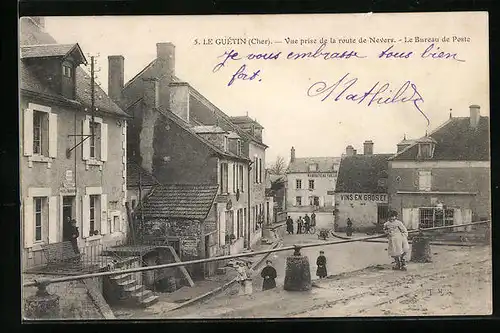 5. LE GUÉTIN (Cher). — Vue prise de la route de Nevers. - Le Bureau de Poste
Je vous embrasse tous bien
fort.
Mathilde
VINS EN GROS